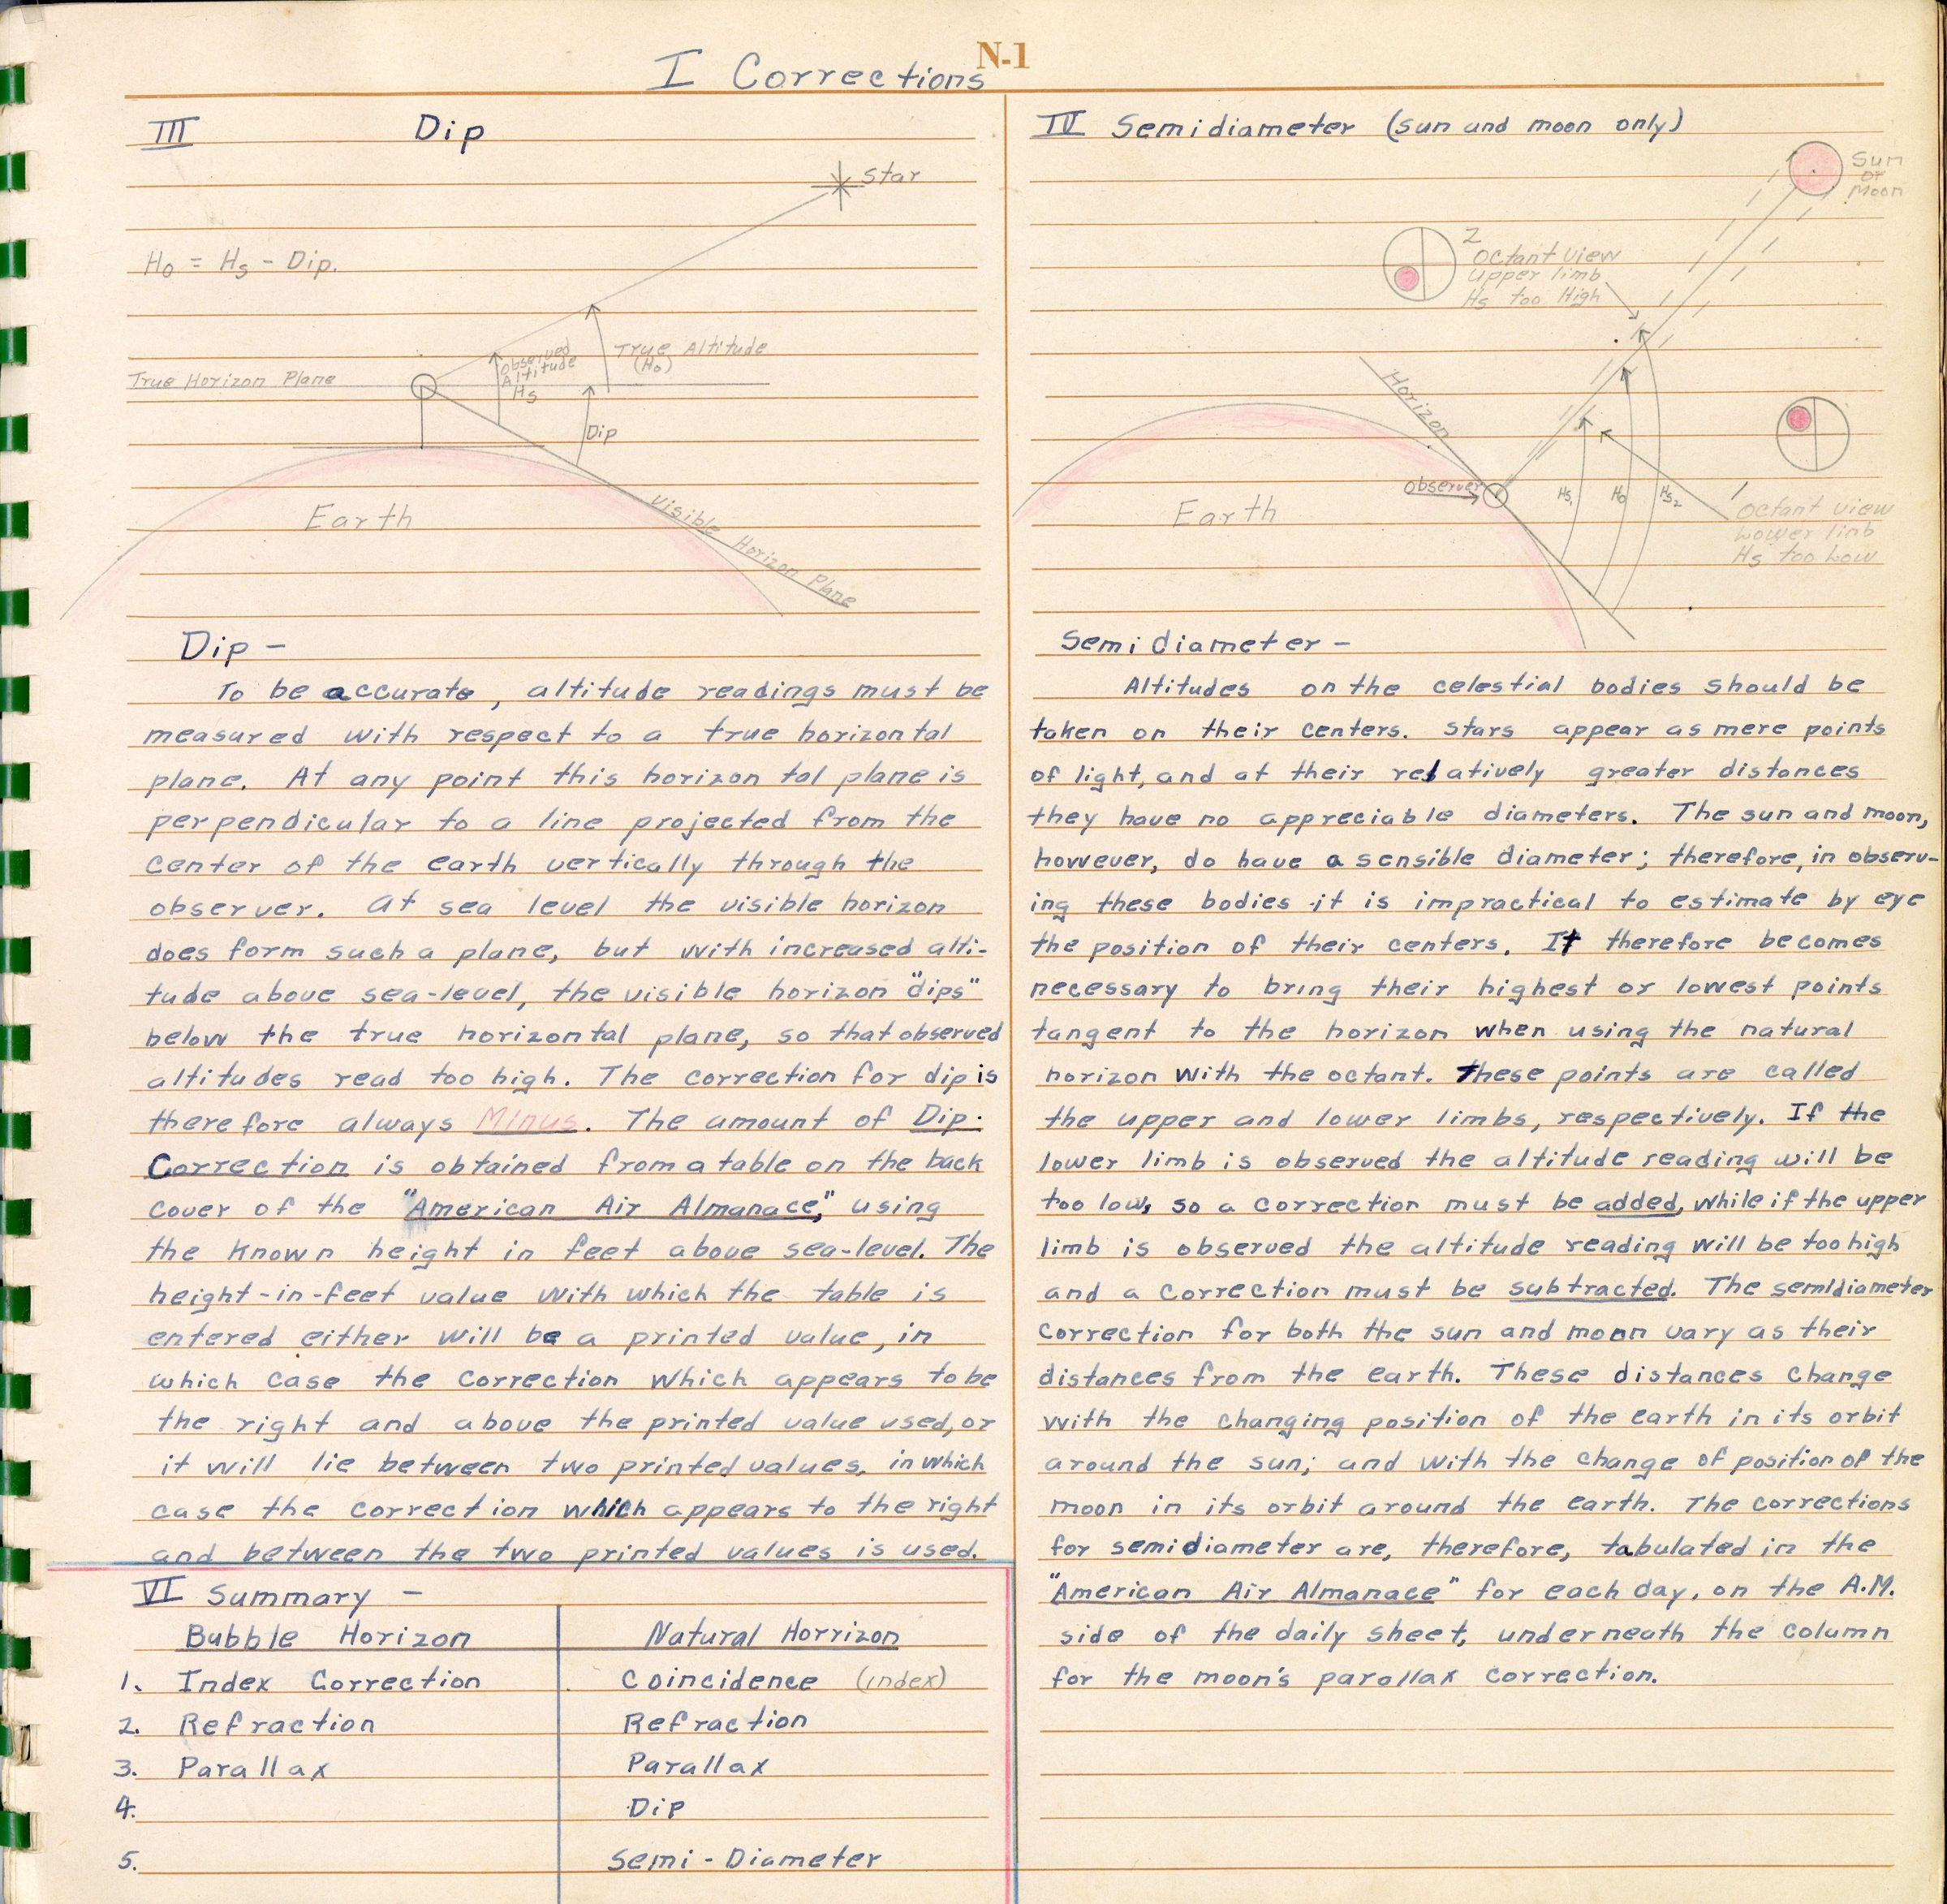 N-1
I Corrections
III Dip
Star
Ho = Hs - Dip.
Observed
Altitude
Hs
True Altitude
(Ho)
True Horizon Plane
Dip
Earth
Visible Horizon Plane
Dip -
To be accurate, altitude readings must be
measured with respect to a true horizontal
plane. At any point this horizontal plane is
perpendicular to a line projected from the
center of the earth vertically through the
observer. At sea level the visible horizon
does form such a plane, but with increased alti-
tude above sea-level, the visible horizon "dips"
below the true horizontal plane, so that observed
altitudes read too high. The correction for dip is
therefore always Minus. The amount of Dip-
Correction is obtained from a table on the back
cover of the "American Air Almanace," using
the known height in feet above sea-level. The
height-in-feet value with which the table is
entered either will be a printed value, in
which case the correction which appears to be
the right and above the printed value used, or
it will lie between two printed values, in which
case the correction which appears to the right
and between the two printed values is used.
VI Summary -
Bubble Horizon Natural Horrizon
1. Index Correction Coincidence (index)
2. Refraction Refraction
3. Parallax Parallax
4. Dip
5. Semi-Diameter
IV Semidiameter (sun and moon only)
Sun
or
Moon
2
Octant view
upper limb
Hs too High
Horizon
Observer
Hs1 Ho Hs2
Earth
1
Octant view
Lower limb
Hs too Low
Semidiameter -
Altitudes on the celestial bodies should be
taken on their centers. Stars appear as mere points
of light, and at their relatively greater distances
they have no appreciable diameters. The sun and moon,
however, do have a sensible diameter; therefore, in observ-
ing these bodies it is impractical to estimate by eye
the position of their centers. It therefore becomes
necessary to bring their highest or lowest points
tangent to the horizon when using the natural
horizon with the octant. These points are called
the upper and lower limbs, respectively. If the
lower limb is observed the altitude reading will be
too low, so a correction must be added, while if the upper
limb is observed the altitude reading will be too high
and a correction must be subtracted. The semidiameter
correction for both the sun and moon vary as their
distances from the earth. These distances change
with the changing position of the earth in its orbit
around the sun; and with the change of position of the
moon in its orbit around the earth. The corrections
for semidiameter are, therefore, tabulated in the
"American Air Almanace" for each day, on the A.M.
side of the daily sheet, underneath the column
for the moon's parallax correction.